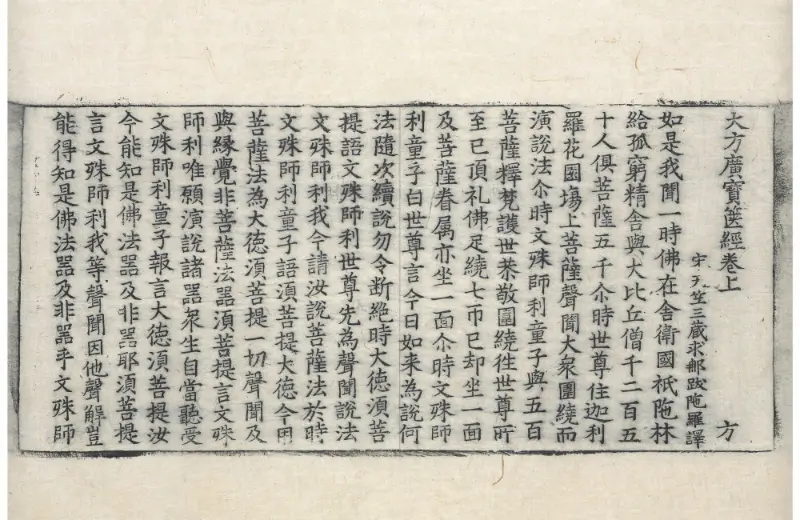 大方廣寶篋經卷上 方
宋天竺三蔵求那跋陁羅譯
如是我聞一時佛在舍衛國祇陁林
給孤窮精舍與大比丘僧千二百五
十人俱菩薩五千尒時世尊住迦利
羅花園塲上菩薩聲聞大衆圍繞而
演說法尒時文殊師利童子與五百
菩薩釋梵護世恭敬圍繞徃世尊所
至已頂礼佛足繞七帀已却坐一面
及菩薩眷属亦坐一面尒時文殊師
利童子白世尊言今日如来為說何
法隨次續說勿令断絕時大徳湏菩
提語文殊師利世尊先為聲聞說法
文殊師利我今請汝說菩薩法於時
文殊師利童子語湏菩提大徳今因
菩薩法為大徳湏菩提一切聲聞及
與緣覺非菩薩法器湏菩提言文殊
師利唯願演說諸器衆生自當聽受
文殊師利童子報言大徳湏菩提汝
今能知是佛法器及非器耶湏菩提
言文殊師利我等聲聞因他聲解豈
能得知是佛法器及非器乎文殊師